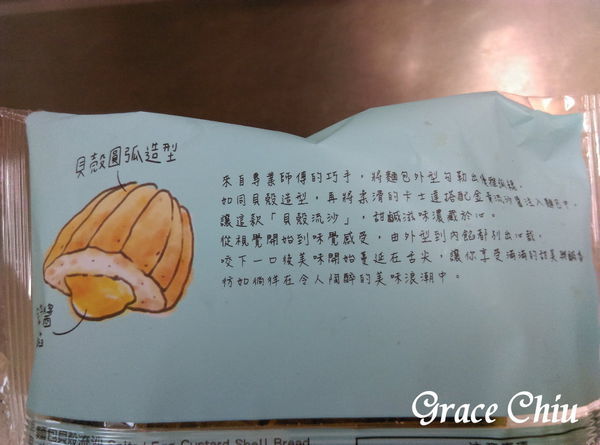 貝殼圓弧造型
來自專業師傅的巧手，將麵包外型勾勒出優雅弧線，
如同貝殼造型，再將柔滑的卡士達搭配金黃流沙醬注入麵包中，
讓這款「貝殼流沙」，甜鹹滋味濃藏於心。
從視覺開始到味覺感受，由外型到內餡都別出心裁，
咬下一口後美味開始蔓延在舌尖，讓你享受滿滿的甜美與鹹香
彷如徜徉在令人陶醉的美味浪潮中。
醬
Custard Shell Bread
Grace Chiu